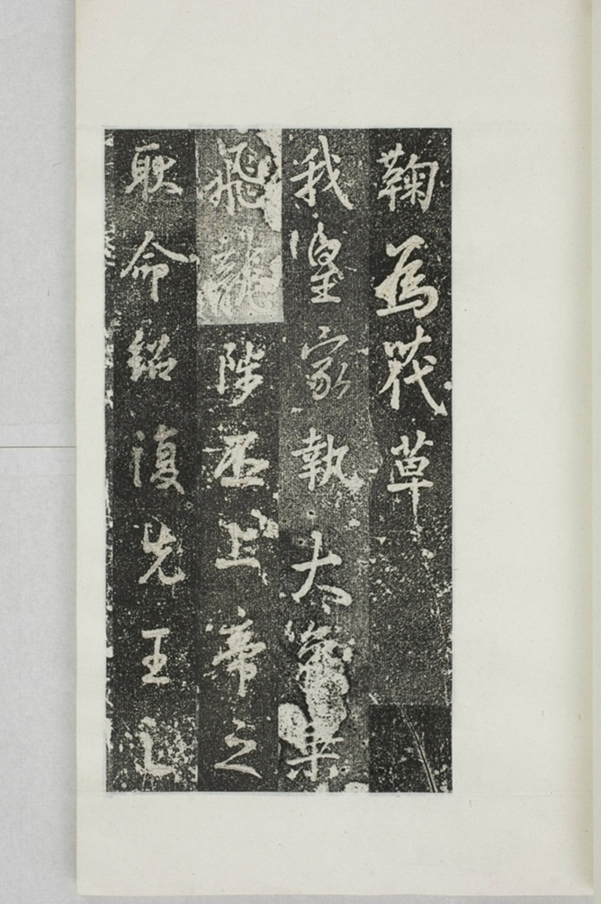 鞠為茂草
我皇家執大象乘
飛龍陟丕上帝之
耿命紹復先王之